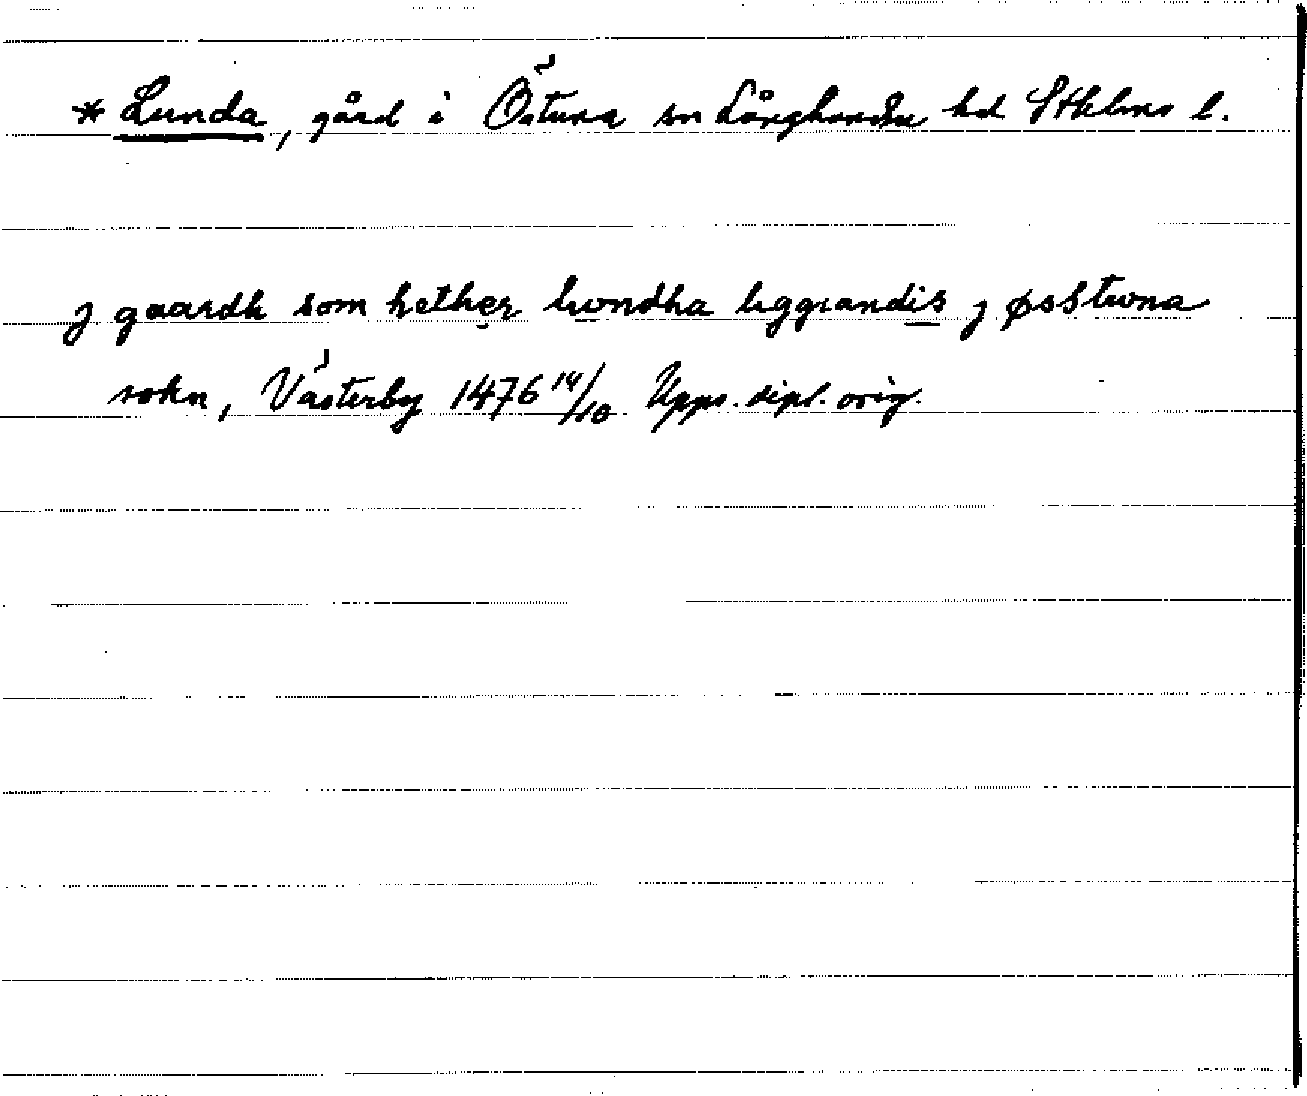 * Lunda, gård i Östuna sn Långhundra hd Sthlms l.
j gaardh som hether lwndha liggiandis j øsstwna
sokn, Västerby 1476 14/10 Upps. dipl. orig.